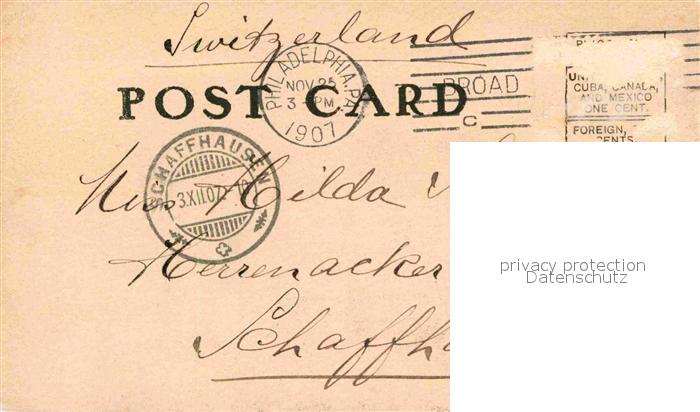 Switzerland
PHILADELPHIA, PA.
NOV 25
3 - PM
1907
BROAD
C
POST CARD
CUBA, CANADA,
AND MEXICO
ONE CENT.
FOREIGN,
SCHAFFHAUSEN
3.XII.07
Miss Hilda
Herrenacker
Schaffh
privacy protection
Datenschutz